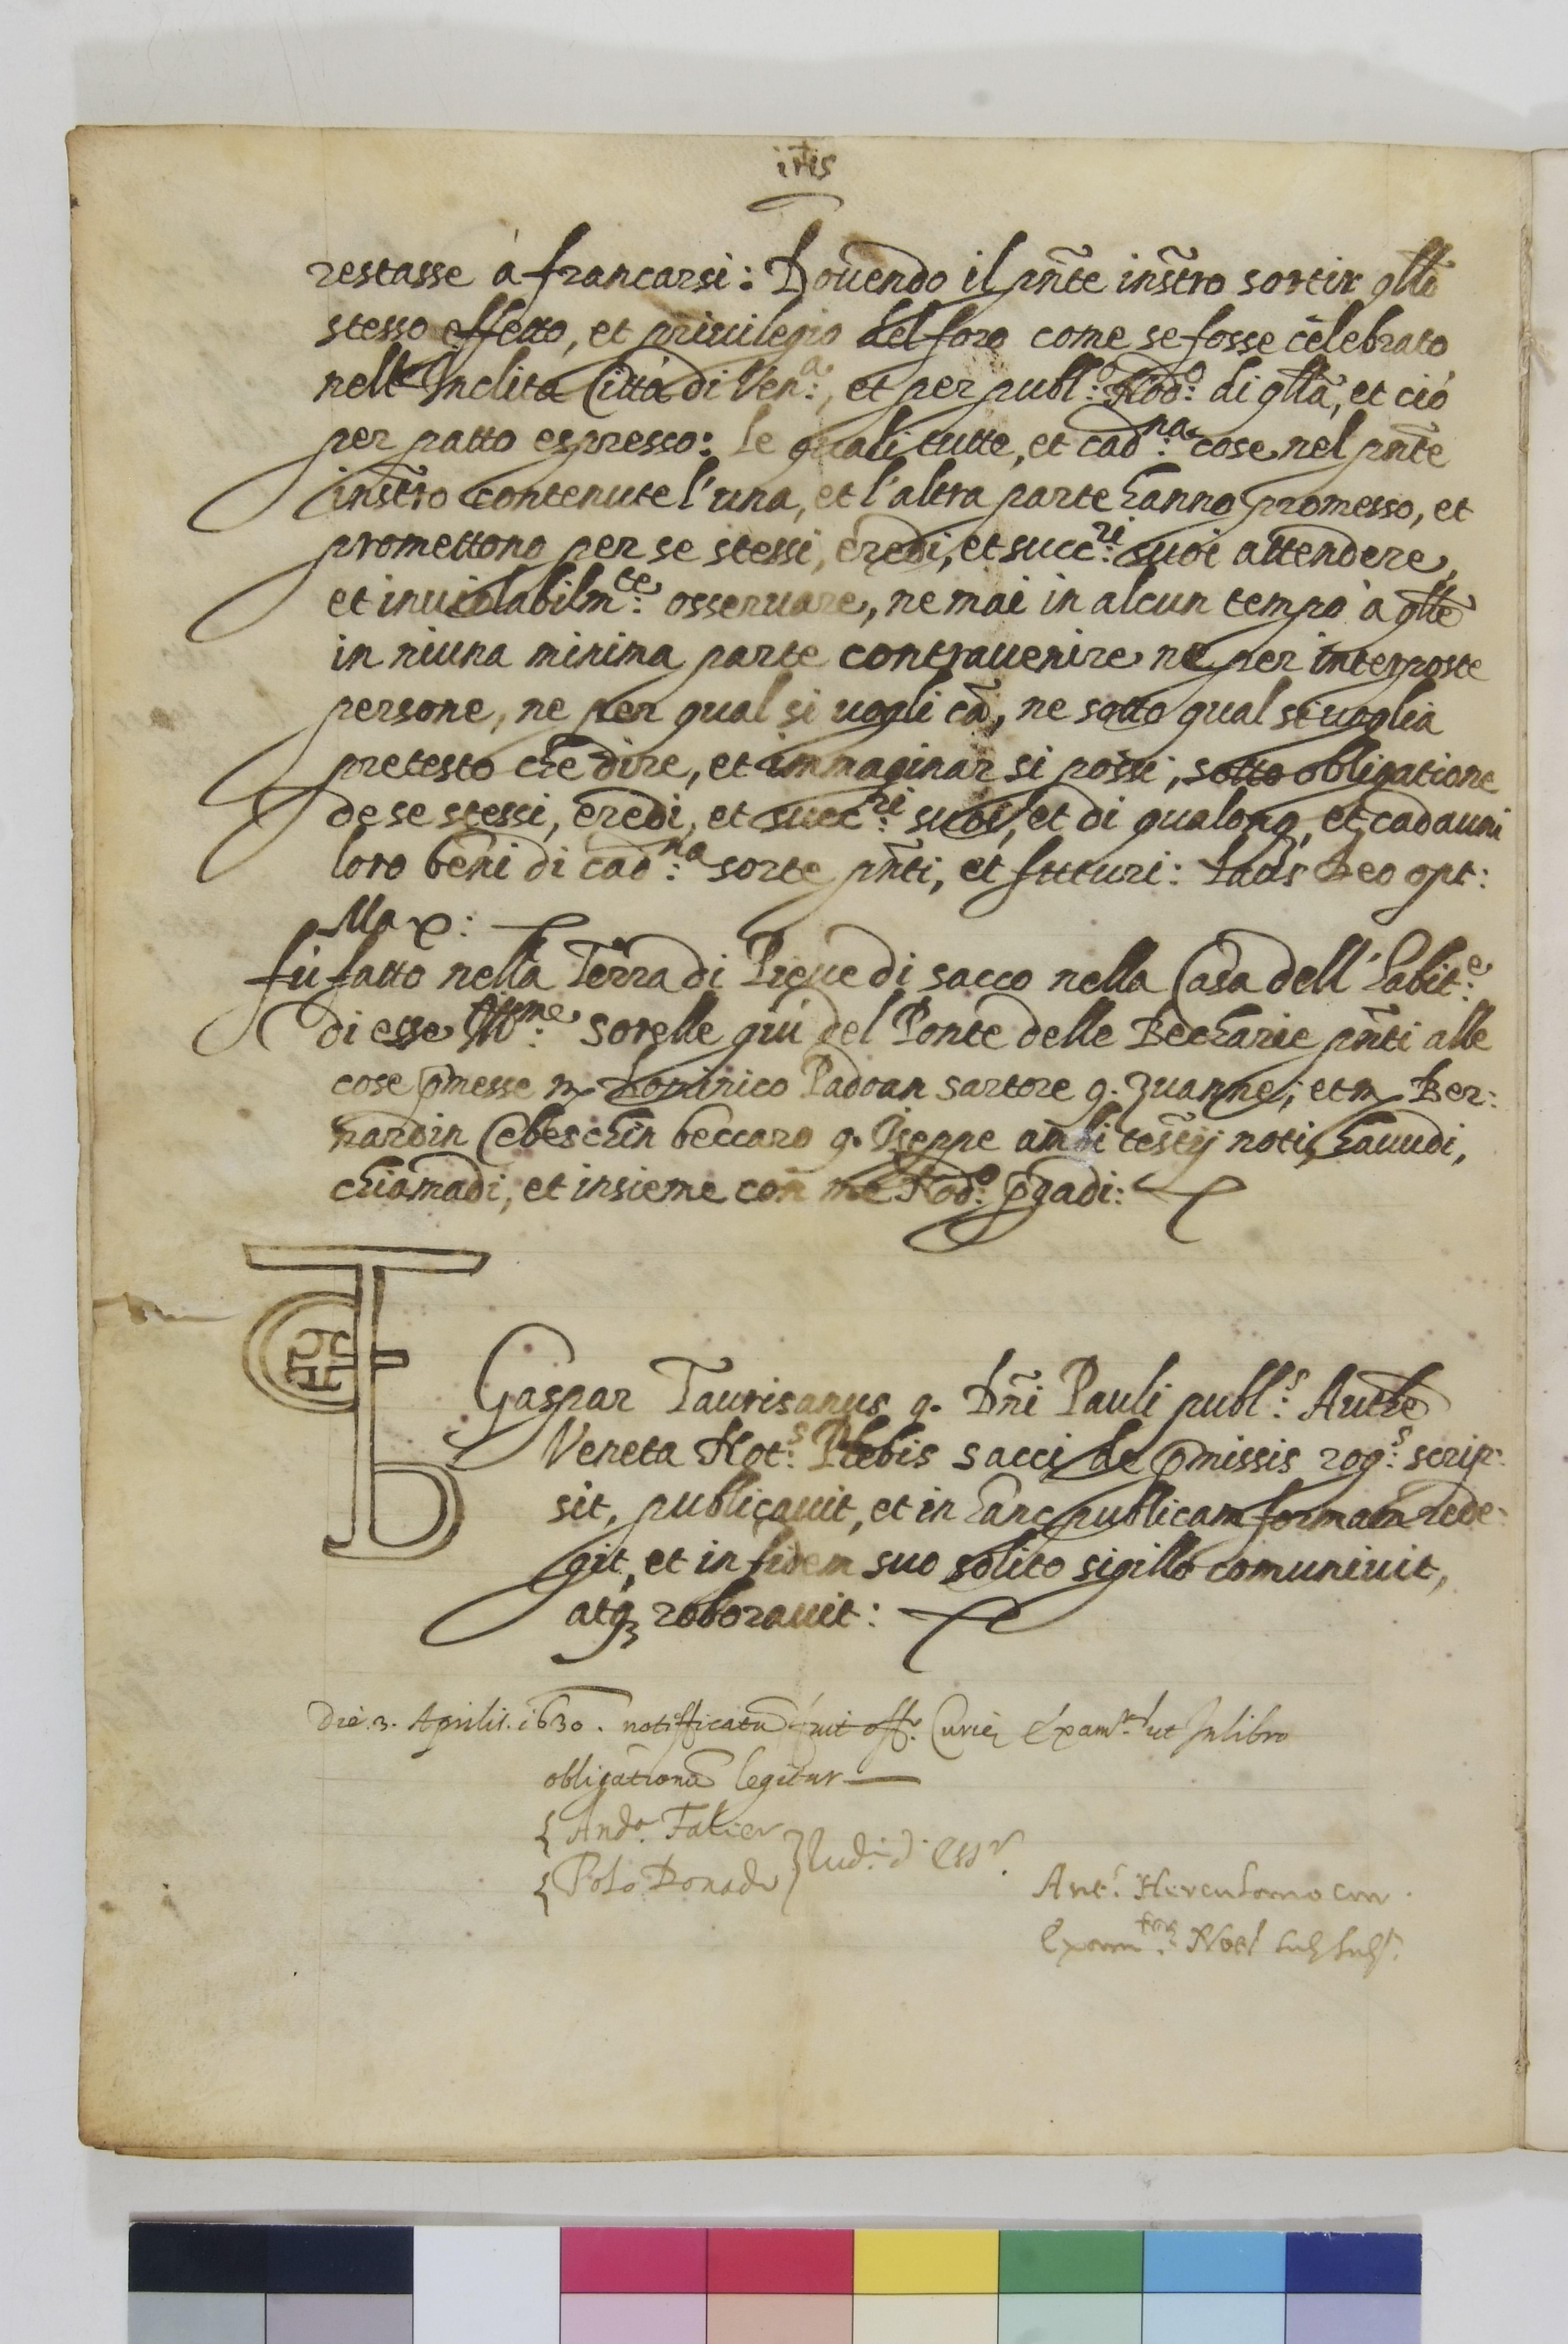 restasse à francarsi: Doũendo il pñte inst̃ro sortir qll̃o
stesso effetto, et priuilegio del foro come se fosse celebrato
nell'Inclita Città di Ven:ᵃ, et per publ:ᵒ Nod:ᵒ di qll̃a, et ciò
per patto espresso: Le quali tutte, et cad:ⁿᵃ cose nel pñte
inst̃ro contenute l'una, et l'altra parte hanno promesso, et
promettono per se stessi, eredi, et succ:ʳⁱ suoi attendere,
et inuiolabilm:ᵗᵉ osseruare, ne mai in alcun tempo à qll̃e
in niuna minima parte contrauenire ne per interposte
persone, ne per qual si uogli cã, ne sotto qual si uoglia
pretesto che dire, et immaginar si possi, sotto obligatione
de se stessi, eredi, et succ:ʳⁱ suoi, et di qualonq, et cadauni
loro beni di cad:ⁿᵃ sorte pñti, et futturi: Laus Deo opt:
Max:
fù fatto nella Terra di Pieue di sacco nella Casa dell'habit:ᵉ
di esse Ill:ᵐᵉ sorelle giù del Ponte delle Becharie pñti alle
cose p̃messe m̃ Dominico Padoan sartore q. Zuanne; et m̃ Ber:
nardin Cebeschin beccaro q. Iseppe ambi test̃ij noti, hauudi,
chiamadi, et insieme con me Nod:ᵒ p̃gadi:
Gaspar Taurisanus q. Dñi Pauli publ:ˢ Auth̃e
Veneta Not:ˢ Plebis sacci de p̃missis rog:ˢ scrip:
sit, publicauit, et in hanc publicam formam rede:
git, et in fidem suo solito sigillo comuniuit,
atq₃ roborauit:
Die. 3. Aprilis. 1630. notifficatũ fuit off. Curię Exam:ʳ ut In libro
obligationũ legitur
And:ᵃ Falier
Polo Donado
Iud: d' Ess:ʳ
Ant:
Exam: